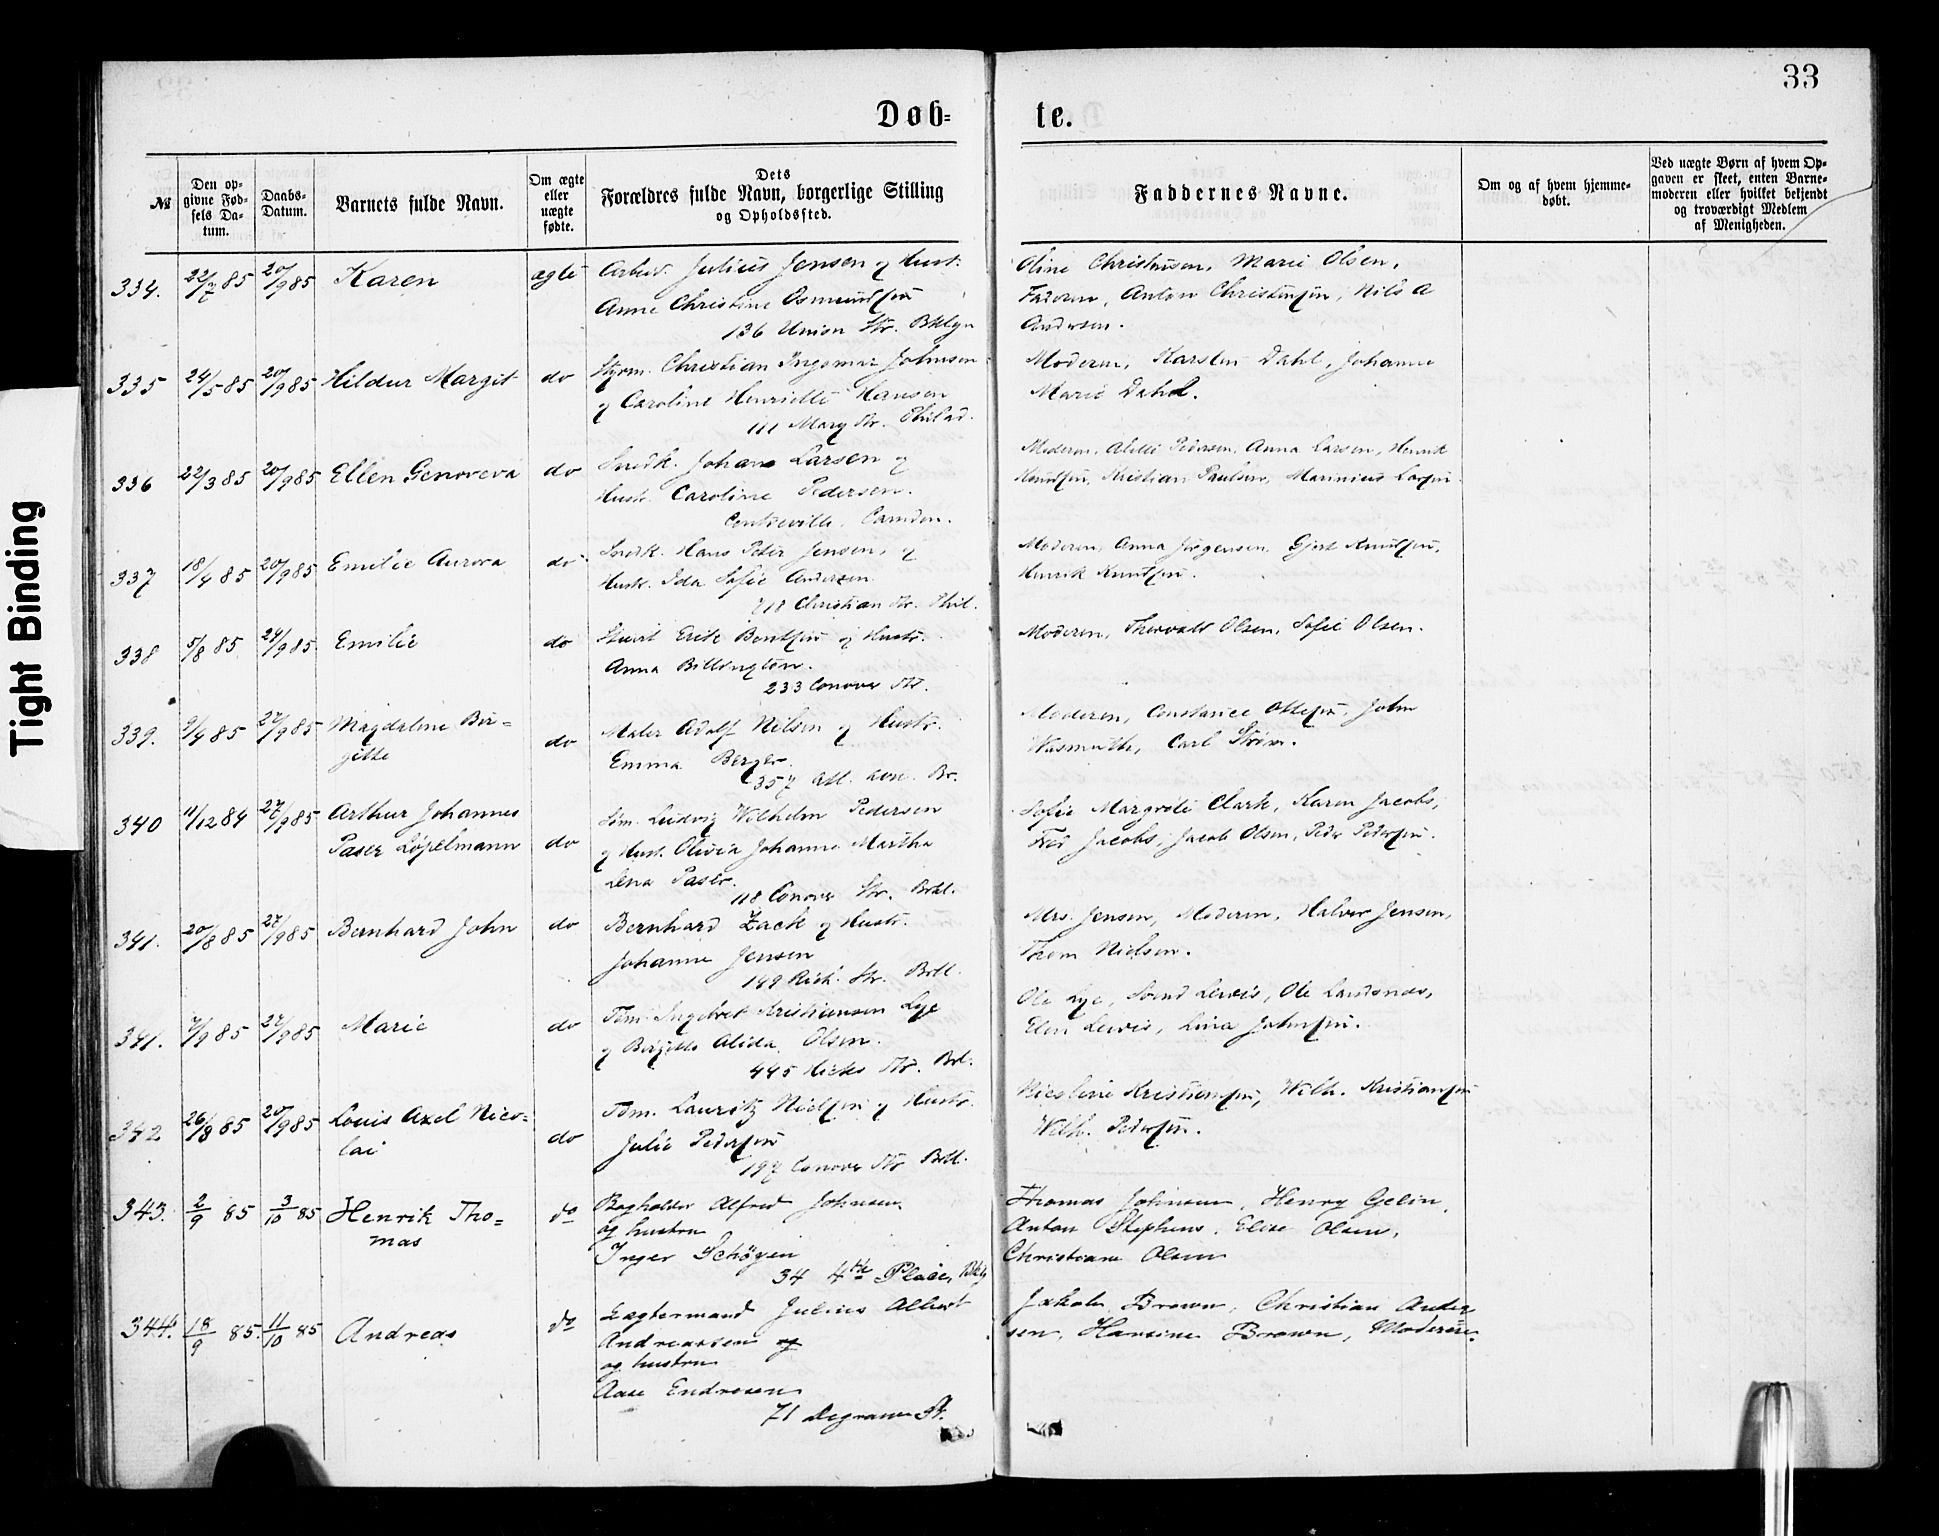 33
Døb= te.
№
Den op-
givne Fød-
sels Da-
tum.
Daabs-
Datum.
Barnets fulde Navn.
Om ægte
eller
uægte
fødte.
Dets
Forældres fulde Navn, borgerlige Stilling
og Opholdssted.
Faddernes Navne.
Om og af hvem hjemme-
døbt.
Ved uægte Børn af hvem Op-
gaven er skeet, enten Barne-
moderen eller hvilket bekjendt
og troværdigt Medlem
af Menigheden.
334. 22/7 85 20/9 85 Karen ægte
Arbeid. Julius Jensen og Hust.
Anne Christine Osmundsen
136 Union Str. Bklyn
Oline Christensen, Marie Olsen,
Faderen, Anton Christensen, Nils A
Andersen.
335 24/5 85 20/9 85 Hildur Margit do
Styrm. Christian Ingemar Johnsen
og Caroline Henriette Hansen
111 Mary Str. Philad.
Moderen, Karsten Dahl, Johanne
Marie Dahl.
336 22/3 85 20/9 85 Ellen Genoveva do
Snedk. Johan Larsen og
Hust. Caroline Pedersen.
Centreville. Camden.
Moderen, Pedersen, Anna Larsen, Henrik
Knutsen, Kristian Paulsen, Marinius Larsen.
337 18/4 85 20/9 85 Emilie Aurora do
Snedk. Hans Peter Jensen, og
Hust. Ida Sofie Andersen
718 Christian Str. Phil.
Moderen, Anna Jørgensen, Gjert Knutsen,
Henrik Knutsen.
338 5/8 85 24/9 85 Emilie do
Erik Bentsen og Hustr.
Anna Billington.
233 Conover Str.
Moderen, Thorvald Olsen, Sofie Olsen.
339. 9/4 85 27/9 85 Magdaline Bir=
gitte do
Maler Adolf Nilsen og Hustr.
Emma Berger.
357 Atl. Ave. Br.
Moderen, Constance Ottesen, John
Wasmuth, Carl Strøm.
340 11/12 84 27/9 85 Arthur Johannes
Paser Løpelmann do
Søm. Ludvig Wilhelm Pedersen
og Hust. Olivia Johanne Martha
Lena Paser.
118 Conover Str. Bkl.
Sofie Margrete Clark, Karen Jacobs,
Fred Jacobs, Jacob Olsen, Peder Pedersen.
341. 20/8 85 27/9 85 Bernhard John do
Bernhard Zack og Hustr.
Johanne Jensen
149 Rich. Str. Bkl.
Mrs. Jensen, Moderen, Halvor Jensen,
Thom Nielsen.
341. 7/9 85 27/9 85 Marie do
Tøm. Ingebret Kristiansen Lye
og Birgitte Alida Olsen.
445 Hicks Str. Bkl.
Ole Lye, Svend Lewis, Ole Landsnæs,
Elen Lewis, Lina Johnsen.
342 26/8 85 20/9 85 Louis Axel Nico-
lai do
Tøm. Lauritz Nielsen og Hustr.
Julie Pedersen
197 Conover Str Bkl.
Nicoline Kristiansen, Wilh. Kristiansen
Wilh. Pedersen.
343. 2/9 85 3/10 85 Henrik Tho=
mas do
Bogholder Alfred Johnsen
og hustru
Inger Schøyen
34 4th Place, Bkly
Thomas Johnsen, Henry Gelin,
Anton Stephens, Elise Olsen,
Christiane Olsen
344. 18/9 85. 11/10 85 Andreas do
Lægtermand Julius Albert
Andreassen og
og hustru
Aase Endresen
71 Degraw St.
Jakob Brown, Christian Ander=
sen, Hansine Brown, Moderen.
Tight Binding